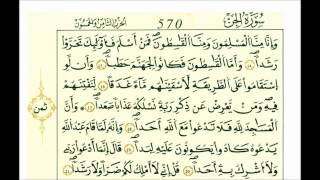 سُورَةُ الْجِنِّ 570 الحزب الثامن والخمسون
وَإِنَّا مِنَّا الْمُسْلِمُونَ وَمِنَّا الْقَٰسِطُونَ فَمَنْ أَسْلَمَ فَأُوْلَٰٓئِكَ تَحَرَّوْا
رَشَدًا وَأَمَّا الْقَٰسِطُونَ فَكَانُوا لِجَهَنَّمَ حَطَبًا وَأَن لَّوِ
اسْتَقَٰمُوا عَلَى الطَّرِيقَةِ لَأَسْقَيْنَٰهُم مَّآءً غَدَقًا لِّنَفْتِنَهُمْ
فِيهِ وَمَنْ يُعْرِضْ عَن ذِكْرِ رَبِّهِ نَسْلُكْهُ عَذَابًا صَعَدًا وَأَنَّ
الْمَسَٰجِدَ لِلَّهِ فَلَا تَدْعُوا مَعَ اللَّهِ أَحَدًا وَإِنَّهُ لَمَّا قَامَ عَبْدُ اللَّهِ
يَدْعُوهُ كَادُوا يَكُونُونَ عَلَيْهِ لِبَدًا قَالَ إِنَّمَا أَدْعُوا رَبِّي
وَلَا أُشْرِكُ بِهِ أَحَدًا قُلْ إِنِّي لَا أَمْلِكُ لَكُمْ ضَرًّا وَلَا رَشَدًا
ثمن